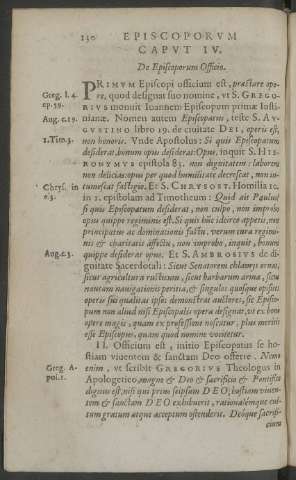 130 EPISCOPORVM
CAPVT IV.
De Episcoporum Officio.
PRIMVM Episcopi officium est, præstare ope-
re, quod designat suo nomine, vt S. GREGO-
Greg. l. 4.
ep. 59.
RIVS monuit Ioannem Episcopum primæ Iusti-
nianæ. Nomen autem Episcopatus, teste S. AV-
Aug. c. 19.
GVSTINO libro 19. de ciuitate DEI, operis est,
non honoris. Vnde Apostolus: Si quis Episcopatum
1. Tim. 3.
desiderat, bonum opus desiderat: Opus, inquit S. HIE-
RONYMVS epistola 83. non dignitatem: laborem
non delicias: opus per quod humilitate decrescat, non in-
tumescat fastigio. Et S. CHRYSOST. Homilia 10.
Chrys. in
c. 3.
in 1. epistolam ad Timotheum: Quid ait Paulus?
si quis Episcopatum desiderat, non culpo, non improbo
opus quippe regiminis est. Si quis huic iderco appetit, non
principatus ac dominationis fastu, verum cura regimi-
nis & charitatis affectu, non improbo, inquit, bonum
quippe desiderat opus. Et S. AMBROSIVS de di-
Aug. c. 3.
gnitate Sacerdotali: Sicut Senatorem chlamys ornat,
sicut agricultura rusticum, sicut barbarum arma, sicut
nautam nauigationis peritia, & singulos quosque opifices
operis sui qualitas ipsos demonstrat auctores; sic Episco-
pum non aliud nisi Episcopalis opera designat, vt ex bono
opere magis, quam ex professione noscatur, plus meritis
esse Episcopus, quam quod nomine vocietur.
II. Officium est, initio Episcopatus se ho-
stiam viuentem & sanctam Deo offerre. Nemo
enim, vt scribit GREGORIVS Theologus in
Greg. A-
pol. 1.
Apologetico, magno & Deo & sacrificio & Pontifice
dignus est, nisi qui prius seipsum DEO, hostiam viuen-
tem & sanctam DEO exhibuerit, rationalemque cul-
tum gratum atque acceptum ostenderit. Deoque sacrifi-
cium